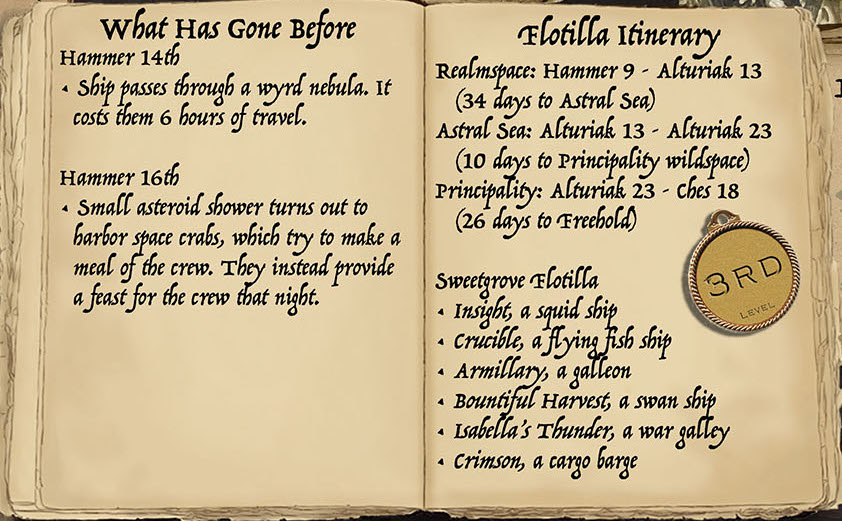 What Has Gone Before
Hammer 14th
• Ship passes through a wyrd nebula. It
costs them 6 hours of travel.
Hammer 16th
• Small asteroid shower turns out to
harbor space crabs, which try to make a
meal of the crew. They instead provide
a feast for the crew that night.
Flotilla Itinerary
Realmspace: Hammer 9 - Alturiak 13
(34 days to Astral Sea)
Astral Sea: Alturiak 13 - Alturiak 23
(10 days to Principality wildspace)
Principality: Alturiak 23 - Ches 18
(26 days to Freehold)
Sweetgrove Flotilla
• Insight, a squid ship
• Crucible, a flying fish ship
• Armillary, a galleon
• Bountiful Harvest, a swan ship
• Isabella's Thunder, a war galley
• Crimson, a cargo barge
3RD
LEVEL